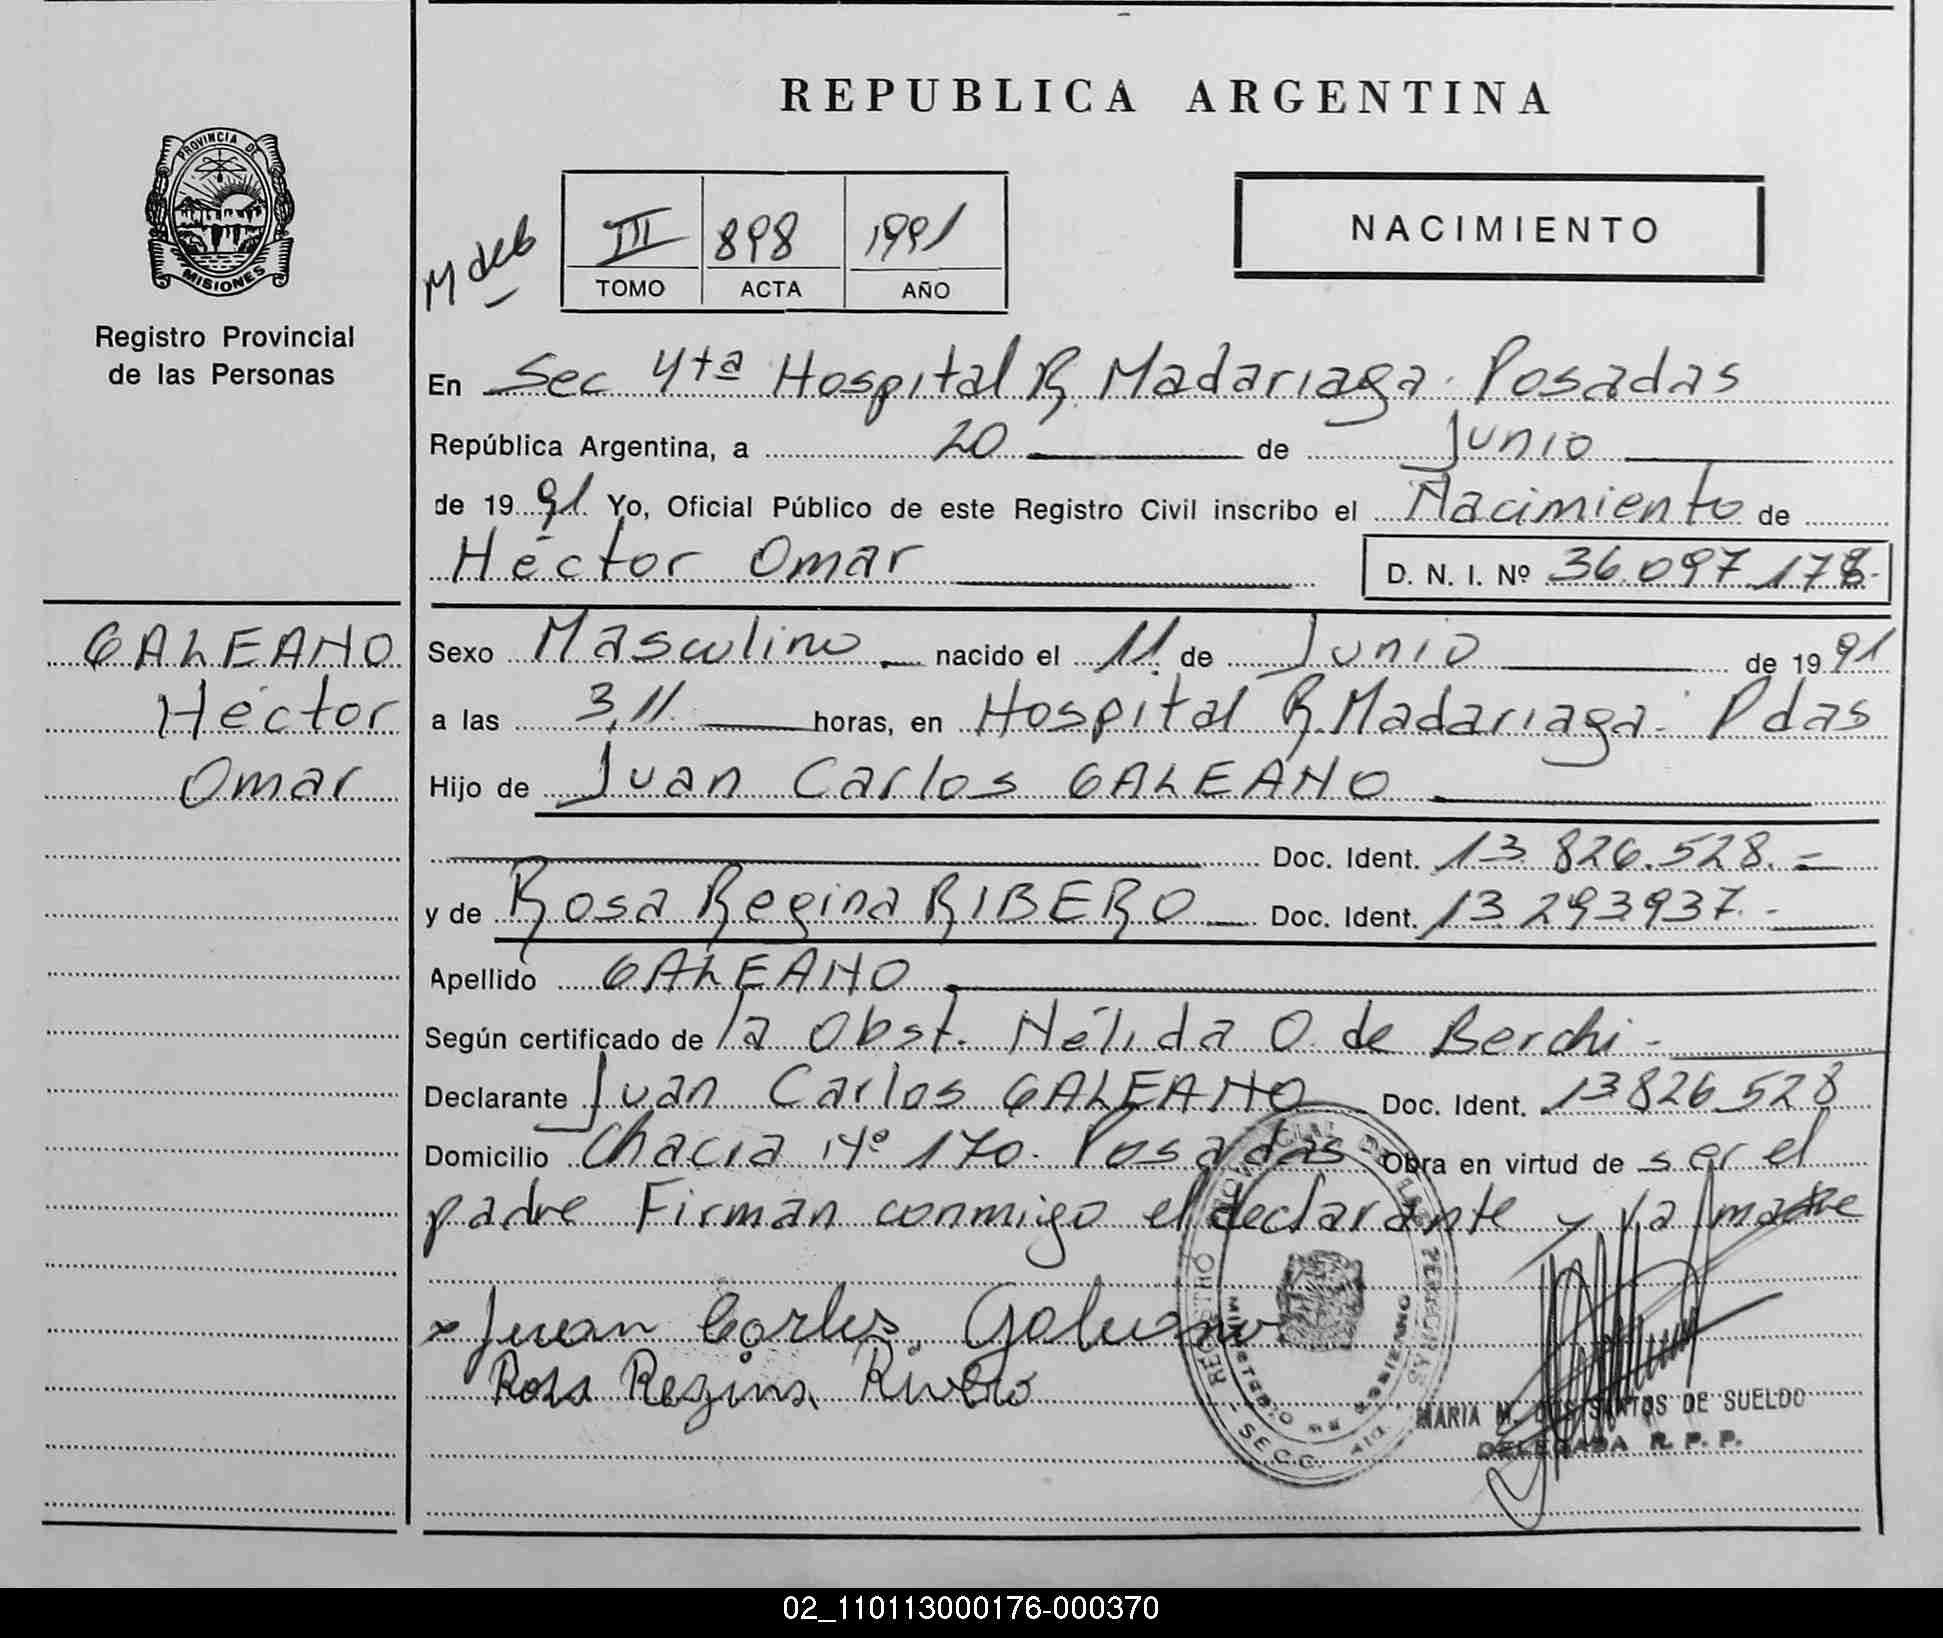 REPUBLICA ARGENTINA
PROVINCIA DE
MISIONES
Registro Provincial
de las Personas
M deb
III 898 1991
TOMO ACTA AÑO
NACIMIENTO
En Sec 4ta Hospital R. Madariaga. Posadas
República Argentina, a 20 de Junio
de 1991. Yo, Oficial Público de este Registro Civil inscribo el Nacimiento de
Héctor Omar D. N. I. Nº 36.097.178.-
GALEANO
Héctor
Omar
Sexo Masculino nacido el 11. de Junio de 1991
a las 3,11. horas, en Hospital R. Madariaga. Pdas
Hijo de Juan Carlos GALEANO
Doc. Ident. 13.826.528.=
y de Rosa Regina RIBERO Doc. Ident. 13.293937.-
Apellido GALEANO
Según certificado de la Obst. Nélida O. de Berchi-
Declarante Juan Carlos GALEANO Doc. Ident. 13826528
Domicilio Chacra Nº 170. Posadas Obra en virtud de ser el
padre Firman conmigo el declarante y la madre
x Juan Carlos Galeano
Rosa Regina Rivero
REGISTRO PROVINCIAL DE LAS PERSONAS
MINISTERIO DE GOBIERNO
SECC.
MARIA M. DOS SANTOS DE SUELDO
DELEGADA R. P. P.
02_110113000176-000370